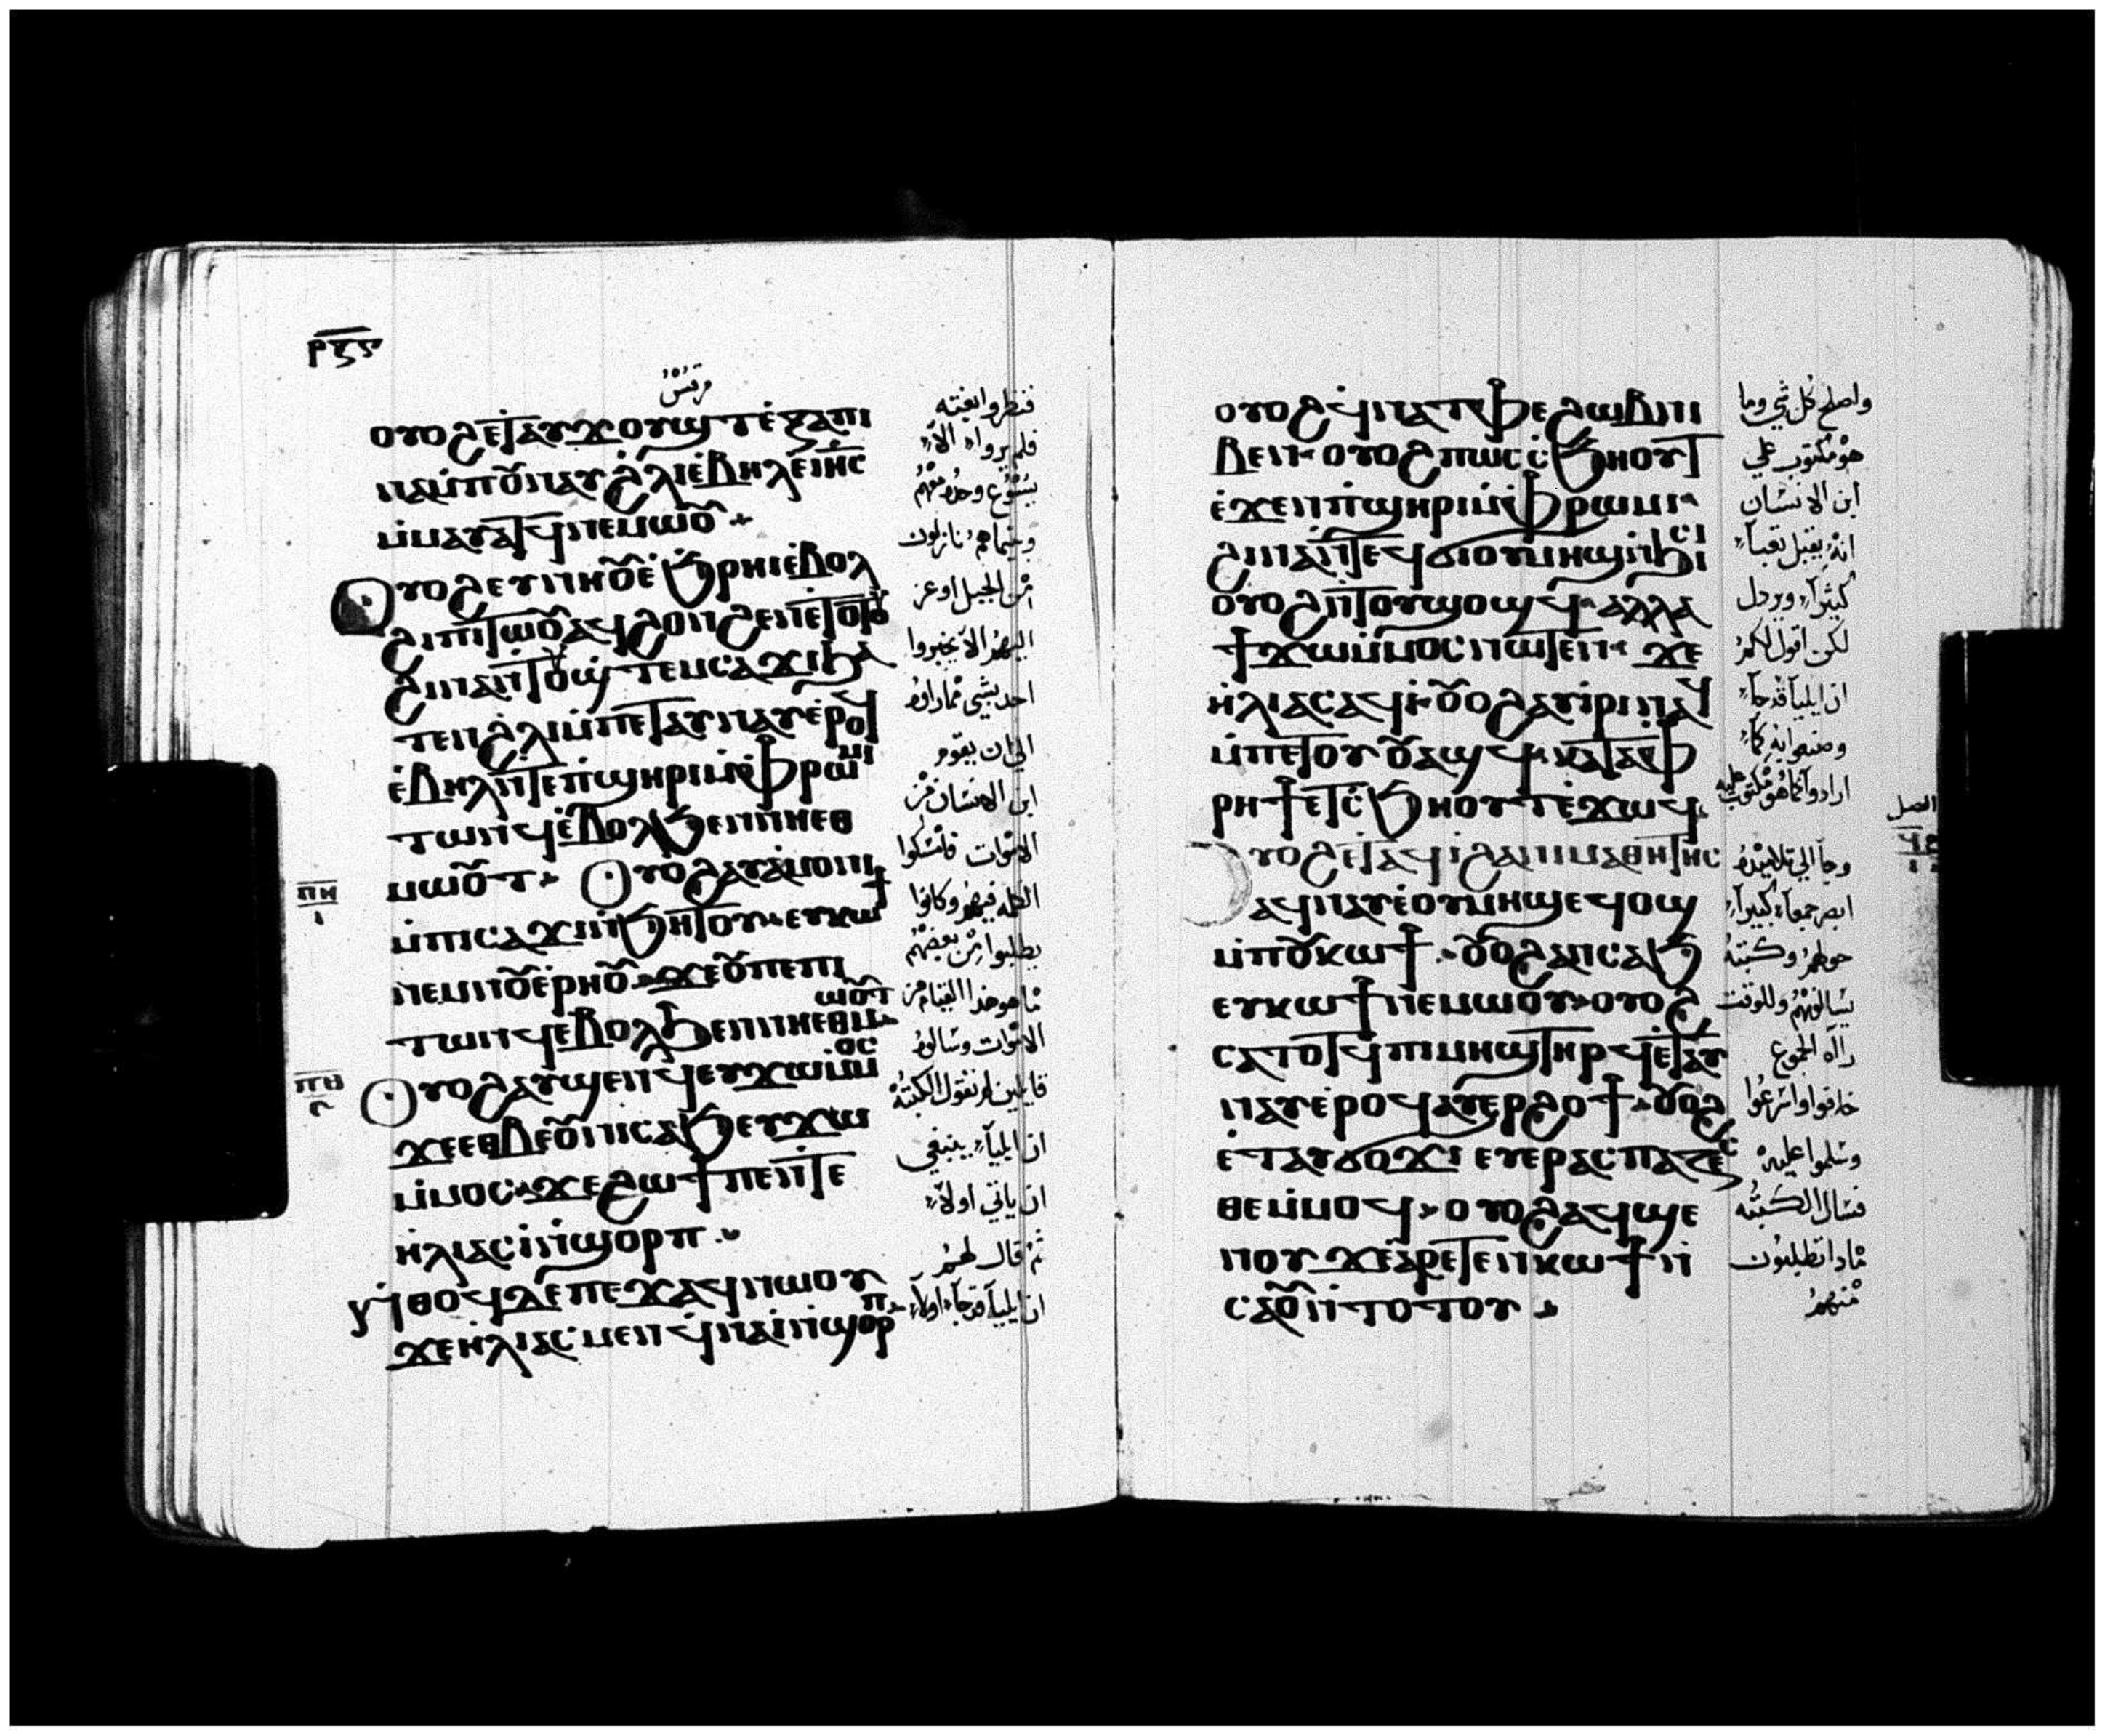 ⲣⲝⲋ
مرقس
ⲟⲩⲟϩ ⲉⲧⲁⲩϫⲟⲩϣⲧ ⲉⲝⲁⲡⲓ
ⲛⲁ ⲙⲡⲟⲩⲛⲁⲩ ⲉϩⲗⲓ ⲉⲃⲏⲗ ⲉⲓⲏⲥ
ⲙⲙⲁⲩⲁⲧϥ ⲛⲉⲙⲱⲟⲩ
ⲟⲩⲟϩ ⲉⲩⲛⲏⲟⲩ ⲉϧⲣⲏⲓ ⲉⲃⲟⲗ
ϩⲓ ⲡⲓⲧⲱⲟⲩ ⲁϥϩⲟⲛϩⲉⲛ ⲉⲧⲟⲧⲟⲩ
ϩⲓⲛⲁ ⲛⲧⲟⲩϣⲧⲉⲙⲥⲁϫⲓ ϧⲁ
ⲧⲉⲛ ϩⲗⲓ ⲙⲡⲉⲧⲁⲩⲛⲁⲩ ⲉⲣⲟϥ
ⲉⲃⲏⲗ ⲛⲧⲉ ⲡϣⲏⲣⲓ ⲙⲫⲣⲱⲙⲓ
ⲧⲱⲛϥ ⲉⲃⲟⲗ ϧⲉⲛ ⲛⲏⲉⲑ
ⲙⲱⲟⲩⲧ ⲟⲩⲟϩ ⲁⲩⲁⲙⲟⲛⲓ
ⲙⲡⲓⲥⲁϫⲓ ⲛϧⲏⲧⲟⲩ ⲉⲩⲕⲱϯ
ⲛⲉⲙ ⲛⲟⲩⲉⲣⲏⲟⲩ ϫⲉ ⲟⲩ ⲡⲉ ⲡⲓ
ⲧⲱⲛϥ ⲉⲃⲟⲗ ϧⲉⲛ ⲛⲏⲉⲑⲙⲱⲟⲩⲧ
ⲟⲩⲟϩ ⲁⲩϣⲉⲛϥ ⲉⲩϫⲱ ⲙⲙⲟⲥ
ϫⲉ ⲉⲑⲃⲉⲟⲩ ⲛⲓⲥⲁϧ ⲉⲩϫⲱ
ⲙⲙⲟⲥ ϫⲉ ϩⲱϯ ⲡⲉ ⲛⲧⲉ
ⲏⲗⲓⲁⲥ ⲓ ⲛϣⲟⲣⲡ
ⲛⲑⲟϥ ⲇⲉ ⲡⲉϫⲁϥ ⲛⲱⲟⲩ
ϫⲉ ⲏⲗⲓⲁⲥ ⲙⲉⲛ ϥⲛⲁⲓ ⲛϣⲟⲣⲡ
ⲡⲏ
ⲡⲑ
فنظروا بغته
فلم يروا الا
يسوع وحده معهم
وفيما هم نازلون
من الجبل اوعز
اليهم الا يخبروا
احد بشي مما راوه
الي ان يقوم
ابن الانسان من
الاموات فامسكوا
الكلمه فيهم وكانوا
يطلبوا من بعضهم
ما هو هذا القيام من
الاموات وسالوه
قايلين لم تقول الكتبه
ان ايليا ينبغي
ان ياتي اولا
ثم قال لهم
ان ايليا قد جاء اولا
ⲟⲩⲟϩ ϥⲛⲁⲧⲫⲉ ϩⲱⲃ ⲛⲓ
ⲃⲉⲛ ⲟⲩⲟϩ ⲡⲱⲥ ⲥϧⲏⲟⲩⲧ
ⲉϫⲉⲛ ⲡϣⲏⲣⲓ ⲙⲫⲣⲱⲙⲓ
ϩⲓⲛⲁ ⲛⲧⲉϥϭⲓ ⲟⲩⲙⲏϣ ⲛϧⲓⲥⲓ
ⲟⲩⲟϩ ⲛⲧⲟⲩϣⲟϣϥ ⲁⲗⲗⲁ
ϯϫⲱ ⲙⲙⲟⲥ ⲛⲱⲧⲉⲛ ϫⲉ
ⲏⲗⲓⲁⲥ ⲁϥⲓ ⲟⲩⲟϩ ⲁⲩⲓⲣⲓ ⲛⲁϥ
ⲙⲡⲉⲧⲟⲩⲟⲩⲁϣϥ ⲕⲁⲧⲁ ⲫ
ⲣⲏϯ ⲉⲧⲥϧⲏⲟⲩⲧ ⲉϫⲱϥ
ⲟⲩⲟϩ ⲉⲧⲁϥⲓ ϩⲁ ⲛⲓⲙⲁⲑⲏⲧⲏⲥ
ⲁϥⲛⲁⲩ ⲉⲟⲩⲙⲏϣ ⲉϥⲟϣ
ⲙⲡⲟⲩⲕⲱϯ ⲟⲩⲟϩ ϩⲁⲛⲥⲁϧ
ⲉⲩⲕⲱϯ ⲛⲉⲙⲱⲟⲩ ⲟⲩⲟϩ
ⲥⲁⲧⲟⲧϥ ⲡⲓⲙⲏϣ ⲧⲏⲣϥ ⲉⲧⲁⲩ
ⲛⲁⲩ ⲉⲣⲟϥ ⲁⲩⲉⲣϩⲟϯ ⲟⲩⲟϩ
ⲉⲧⲁⲩϭⲟϫⲓ ⲉⲩⲉⲣⲁⲥⲡⲁⲍⲉⲥ
ⲑⲉ ⲙⲙⲟϥ ⲟⲩⲟϩ ⲁϥϣⲉ
ⲛⲟⲩ ϫⲉ ⲁⲣⲉⲧⲉⲛⲕⲱϯ ⲛ
ⲥⲁⲟⲩ ⲛⲧⲟⲧⲟⲩ
واصلح كل شي وما
هو مكتوب علي
ابن الانسان
انه يقبل تعبا
كثيرا ويرذل
لكن اقول لكم
ان ايليا قد جاء
وصنعوا به كما
ارادوا كما هو مكتوب عليه
وجاء الي تلاميذه
ابصر جمعا كبيرا
حولهم وكتبه
يسالونهم وللوقت
راه الجموع
خافوا واسرعوا
وسلموا عليه
فسال الكتبه
ماذا تطلبون
منهم